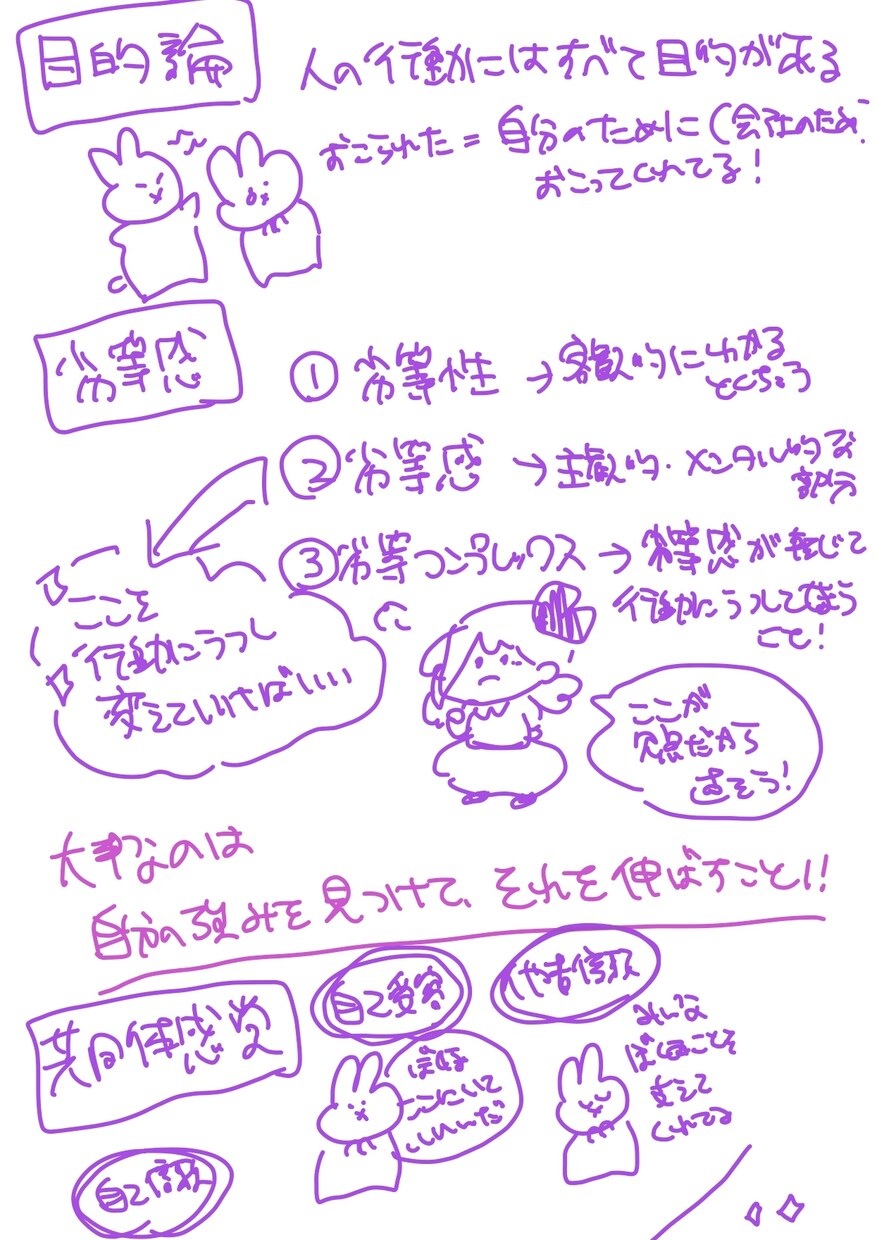 目的論
人の行動にはすべて目的がある
おこられた = 自分のために(会社のため)
おこってくれてる!
劣等感
① 劣等性 → 客観的にわかる
とくちょう
② 劣等感 → 主観的・メンタル的な
部分
③ 劣等コンプレックス → 劣等感が転じて
行動にうつしてしまう
こと!
ここを
行動にうつし
変えていけばいい
ここが
欠点だから
直そう!
大事なのは
自分の強みを見つけて、それを伸ばすこと!!
共同体感覚
自己受容
ぼくは
ここにいて
いいんだ
他者信頼
みんな
ぼくのことを
支えて
くれてる
自己信頼